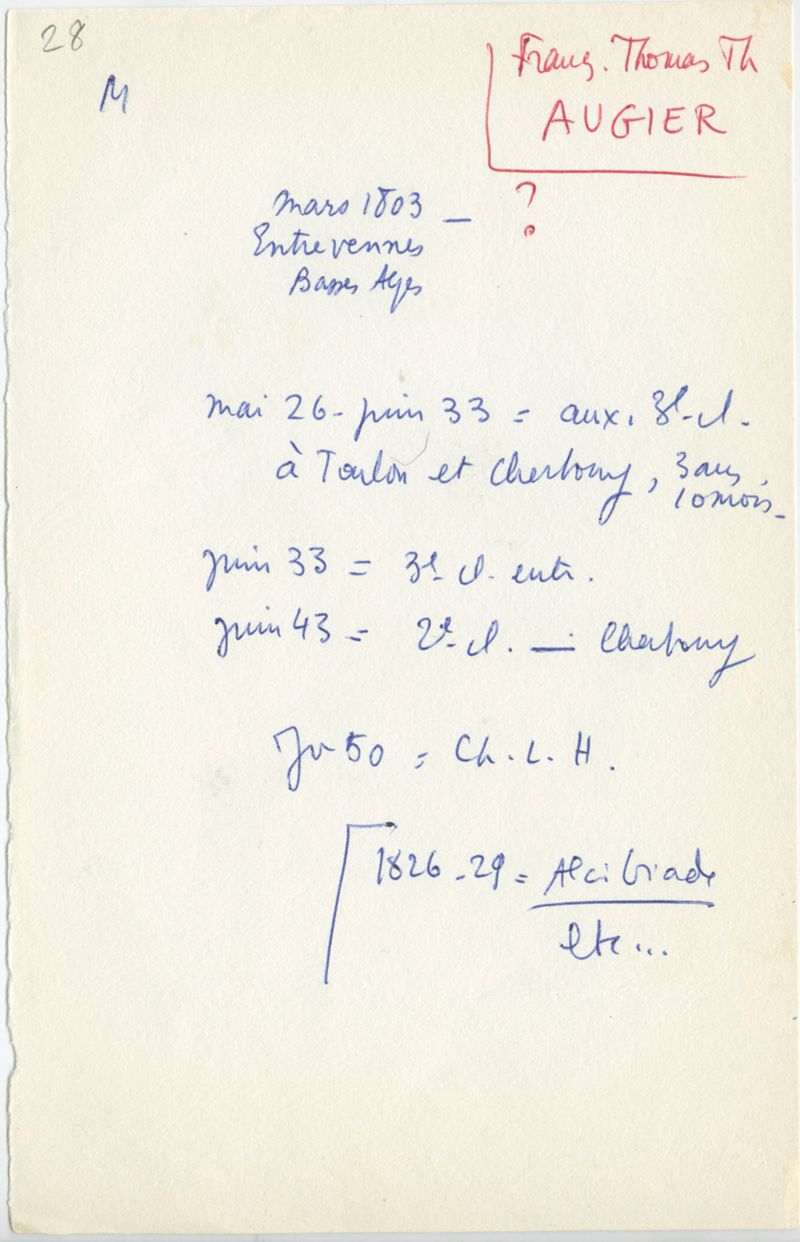 28
M
Franç. Thomas Th
AUGIER
mars 1803 — ?
Entrevennes
Basses Alpes
mai 26 - juin 33 = aux. 3e cl.
à Toulon et Cherbourg, 3 ans,
10 mois -
juin 33 = 3e cl. entr.
juin 43 = 2e cl. — Cherbourg
Jv 50 = Ch. L. H.
1826 - 29 = Alcibiade
etc...